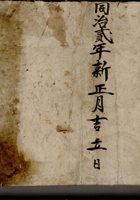 同治貳年新正月吉立日